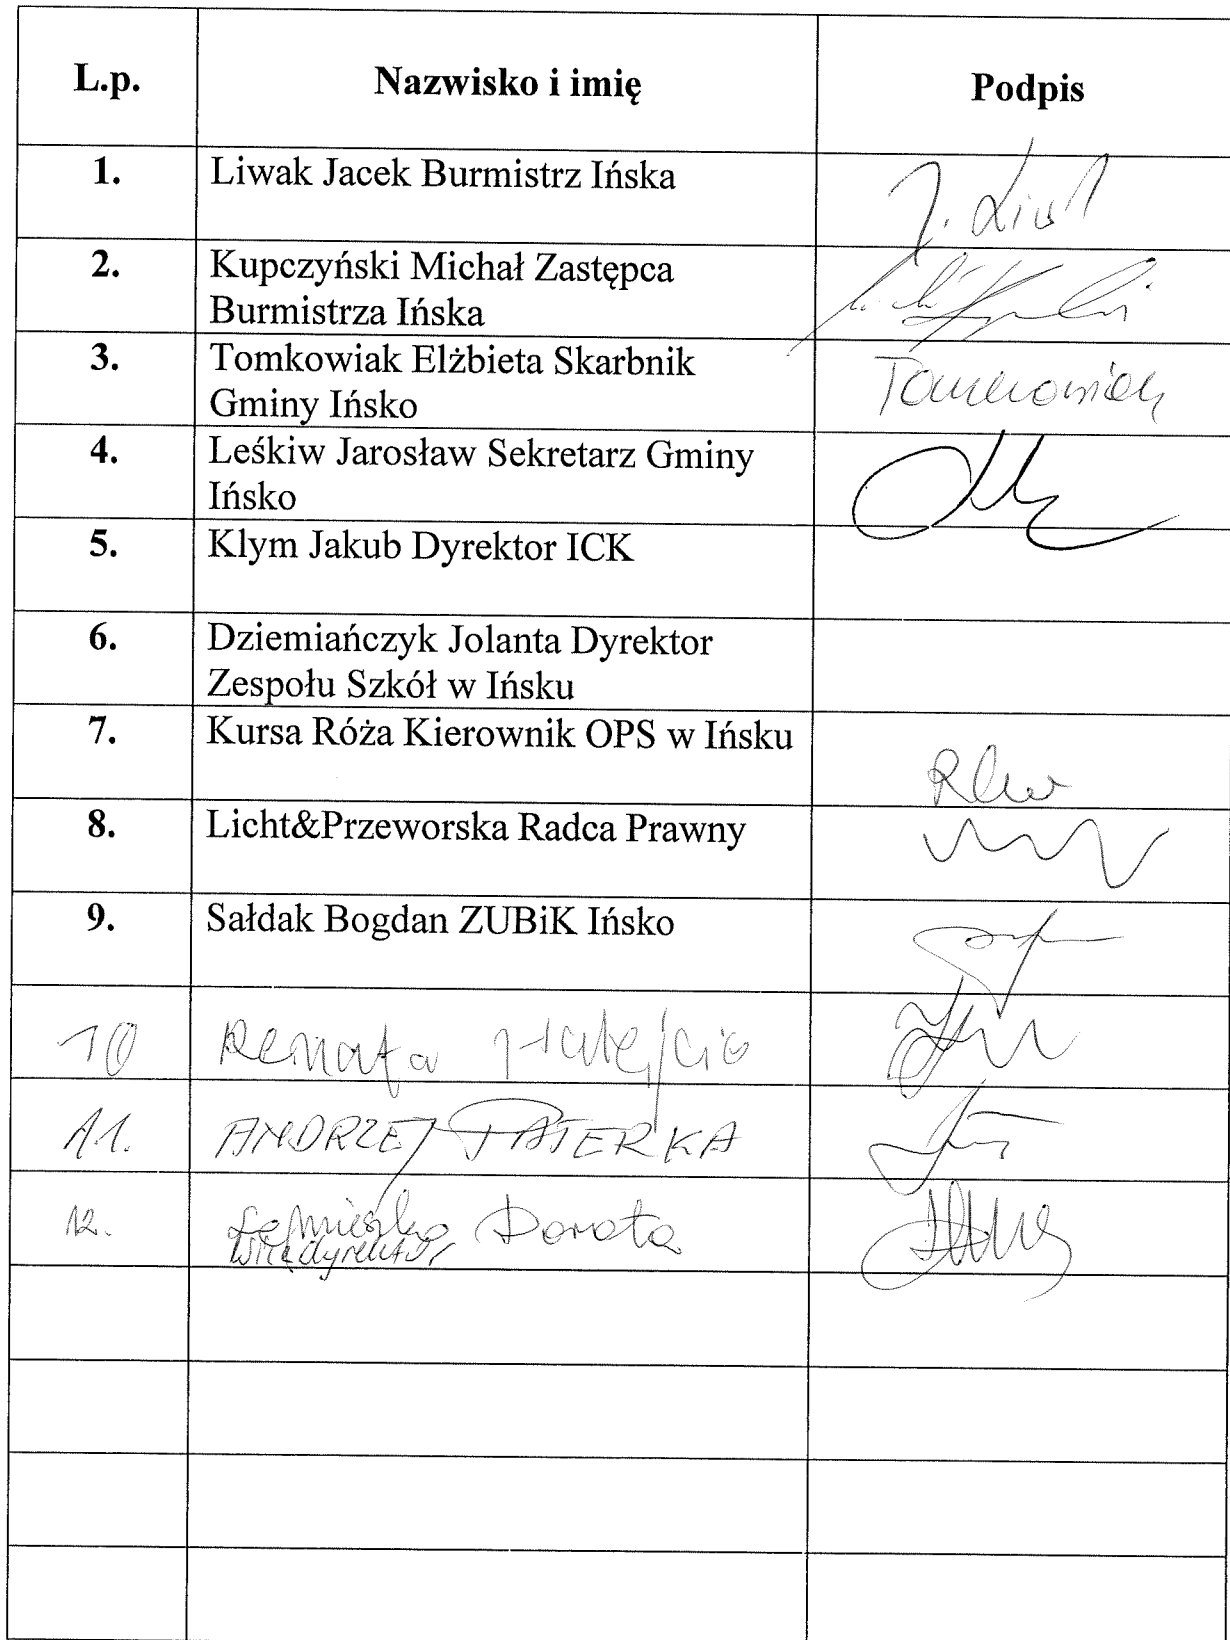 L.p. Nazwisko i imię Podpis
1. Liwak Jacek Burmistrz Ińska
2. Kupczyński Michał Zastępca
Burmistrza Ińska
3. Tomkowiak Elżbieta Skarbnik
Gminy Ińsko
4. Leśkiw Jarosław Sekretarz Gminy
Ińsko
5. Klym Jakub Dyrektor ICK
6. Dziemiańczyk Jolanta Dyrektor
Zespołu Szkół w Ińsku
7. Kursa Róża Kierownik OPS w Ińsku
8. Licht&Przeworska Radca Prawny
9. Sałdak Bogdan ZUBiK Ińsko
10 Renata
11. ANDRZEJ PATERKA
12. Dorota
wicedyrektor